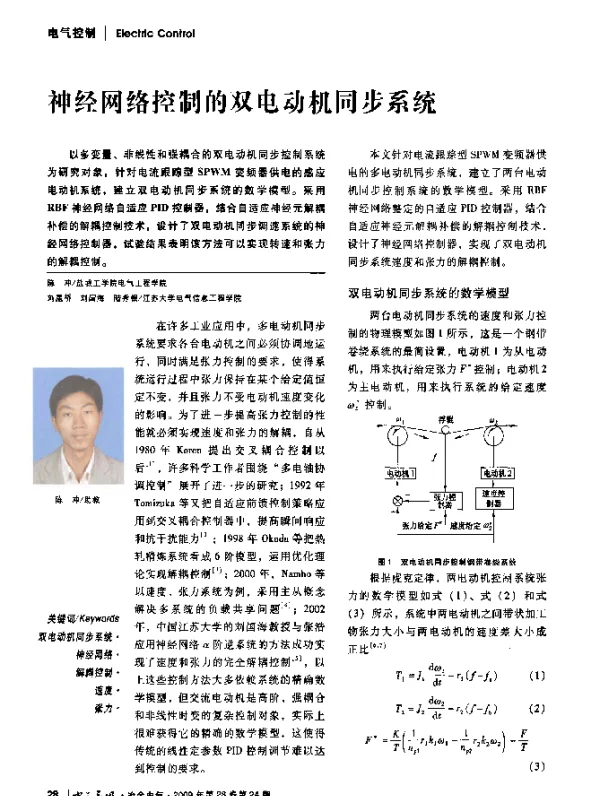 电气控制 | Electric Control
神经网络控制的双电动机同步系统
以多变量、非线性和强耦合的双电动机同步控制系统
为研究对象，针对电流跟踪型 SPWM 变频器供电的感应
电动机系统，建立双电动机同步系统的数学模型。采用
RBF 神经网络自适应 PID 控制器，结合自适应神经元解耦
补偿的解耦控制技术，设计了双电动机同步调速系统的神
经网络控制器，试验结果表明该方法可以实现转速和张力
的解耦控制。
陈 冲/盐城工学院电气工程学院
刘星桥 刘国海 陆秀银/江苏大学电气信息工程学院
陈 冲/助教
关键词/Keywords
双电动机同步系统·
神经网络·
解耦控制·
速度·
张力·
在许多工业应用中，多电动机同步
系统要求各台电动机之间必须协调地运
行，同时满足张力控制的要求，使得系
统运行过程中张力保持在某个给定值恒
定不变，并且张力不受电动机速度变化
的影响。为了进一步提高张力控制的性
能就必须实现速度和张力的解耦，自从
1980 年 Koren 提出交叉耦合控制以
后[1]，许多科学工作者围绕“多电轴协
调控制”展开了进一步的研究；1992年
Tomizuka 等又把自适应前馈控制策略应
用到交叉耦合控制器中，提高瞬间响应
和抗干扰能力[2]；1998年 Okada 等把热
轧精炼系统看成 6 阶模型，运用优化理
论实现解耦控制[3]；2000年，Namho 等
以速度、张力系统为例，采用主从概念
解决多系统的负载共享问题[4]；2002
年，中国江苏大学的刘国海教授与张浩
应用神经网络 α 阶逆系统的方法成功实
现了速度和张力的完全解耦控制[5]，以
上这些控制方法大多依赖系统的精确数
学模型，但交流电动机是高阶、强耦合
和非线性时变的复杂控制对象，实际上
很难获得它的精确的数学模型。这使得
传统的线性定参数 PID 控制调节难以达
到控制的要求。
本文针对电流跟踪型 SPWM 变频器供
电的多电动机同步系统，建立了两台电动
机同步控制系统的数学模型。采用 RBF
神经网络整定的自适应 PID 控制器，结合
自适应神经元解耦补偿的控制技术，
设计了神经网络控制器，实现了双电动机
同步系统速度和张力的解耦控制。
双电动机同步系统的数学模型
两台电动机同步系统的速度和张力控
制的物理模型如图 1 所示，这是一个钢带
卷绕系统的最简设置，电动机 1 为从电动
机，用来执行给定张力 F* 控制；电动机 2
为主电动机，用来执行系统的给定速度
ω₂* 控制。
ω₁ 浮辊 ω₂
f
电动机1 电动机2
张力控制器 速度控制器
张力给定F* 速度给定ω₂*
图 1 双电动机同步控制钢带卷绕系统
根据虎克定律，两电动机控制系统张
力的数学模型如式（1）、式（2）和式
（3）所示，系统中两电动机之间带状加工
物张力大小与两电动机的速度差大小成
正比[6,7]
28
2009年第28卷第24期